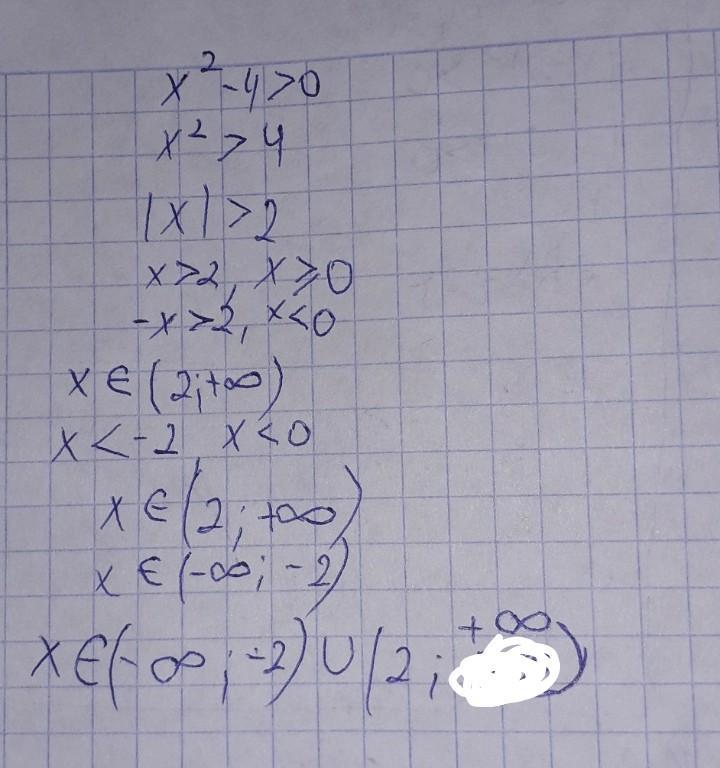 x² - 4 > 0
x² > 4
|x| > 2
x > 2, x ⩾ 0
-x > 2, x < 0
x ∈ (2; +∞)
x < -2 x < 0
x ∈ (2; +∞)
x ∈ (-∞; -2)
x ∈ (-∞; -2) ∪ (2; +∞)